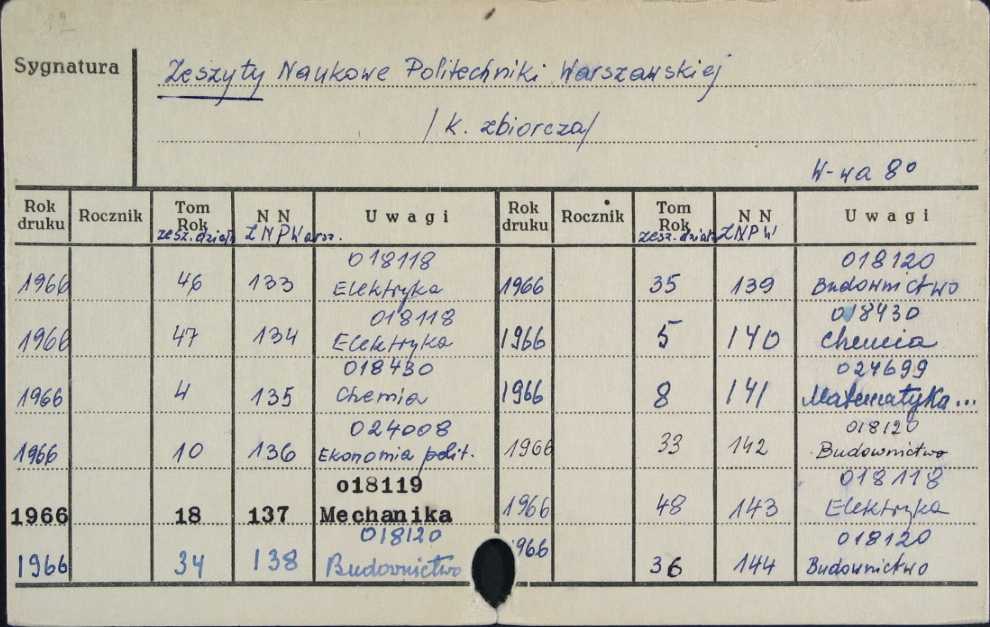 12
Sygnatura
Zeszyty Naukowe Politechniki Warszawskiej
/k. zbiorcza/
W-wa 8°
Rok druku Rocznik Tom Rok zesz. dział N N ZNPWarsz. Uwagi
1966 46 133 018118 Elektryka
1966 47 134 018118 Elektryka
1966 4 135 018430 Chemia
1966 10 136 024008 Ekonomia polit.
1966 18 137 018119 Mechanika
1966 34 138 018120 Budownictwo
Rok druku Rocznik Tom Rok zesz. dział N N ZNPW Uwagi
1966 35 139 018120 Budownictwo
1966 5 140 018430 Chemia
1966 8 141 024699 Matematyka...
1966 33 142 018120 Budownictwo
1966 48 143 018118 Elektryka
1966 36 144 018120 Budownictwo